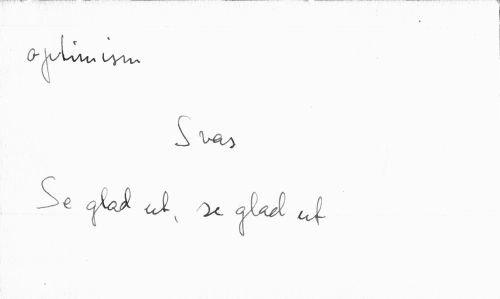 optimism
Svas
Se glad ut, se glad ut